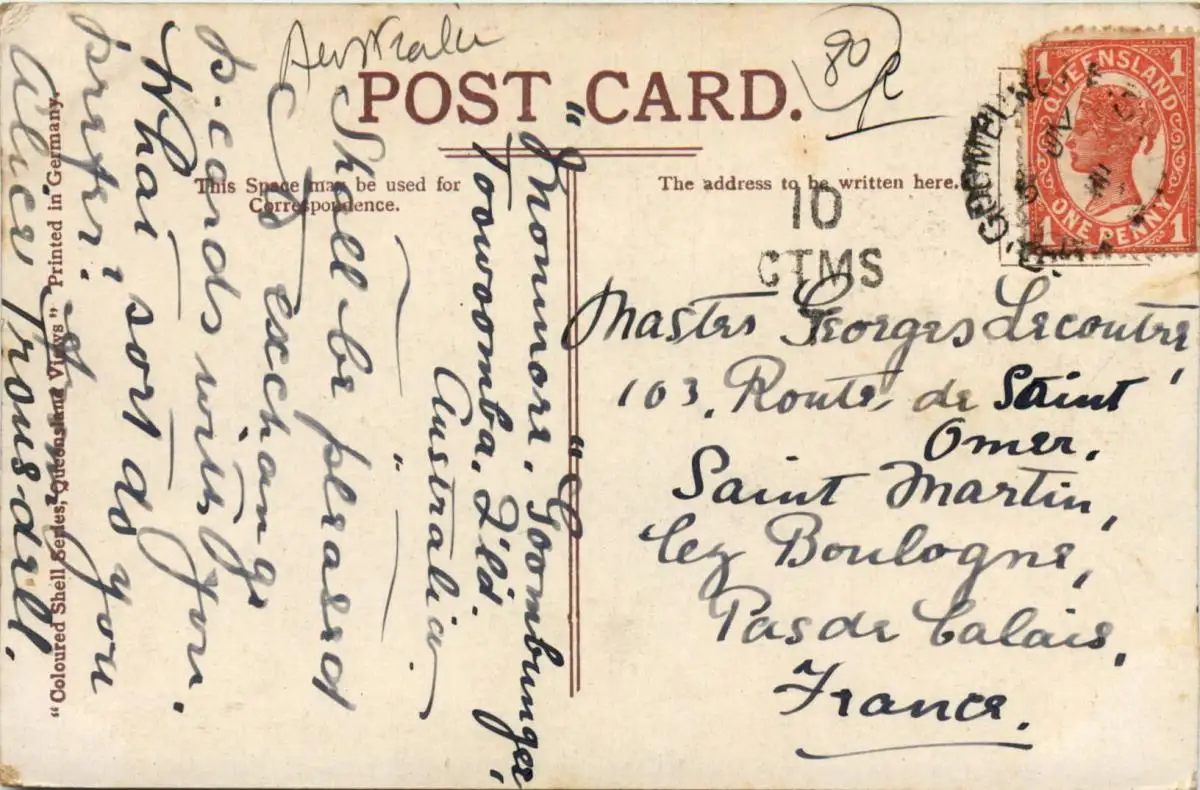 Australia
80
POST CARD.
This Space may be used for
Correspondence.
The address to be written here.
QUEENSLAND
1 1
ONE PENNY
1 1
GOOMBUNGEE
10
CTMS
Master Georges Lecoutre,
103, Route de Saint
Omer,
Saint Martin,
lez Boulogne,
Pas de Calais,
France.
Goombungee,
Toowoomba, Q'ld.
Australia
Shall be pleased
to exchange
p.cards with you.
What sort do you
prefer?
"Coloured Shell Series, Queensland Views" Printed in Germany.